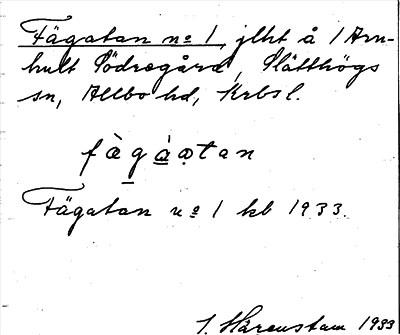 Fägatan nº 1, jlht å 1 Arn-
hult Södregård, Slätthögs
sn, Allbo hd, Krbsl.
fàgáatan
Fägatan nº 1 kb 1933.
J. Härenstam 1933